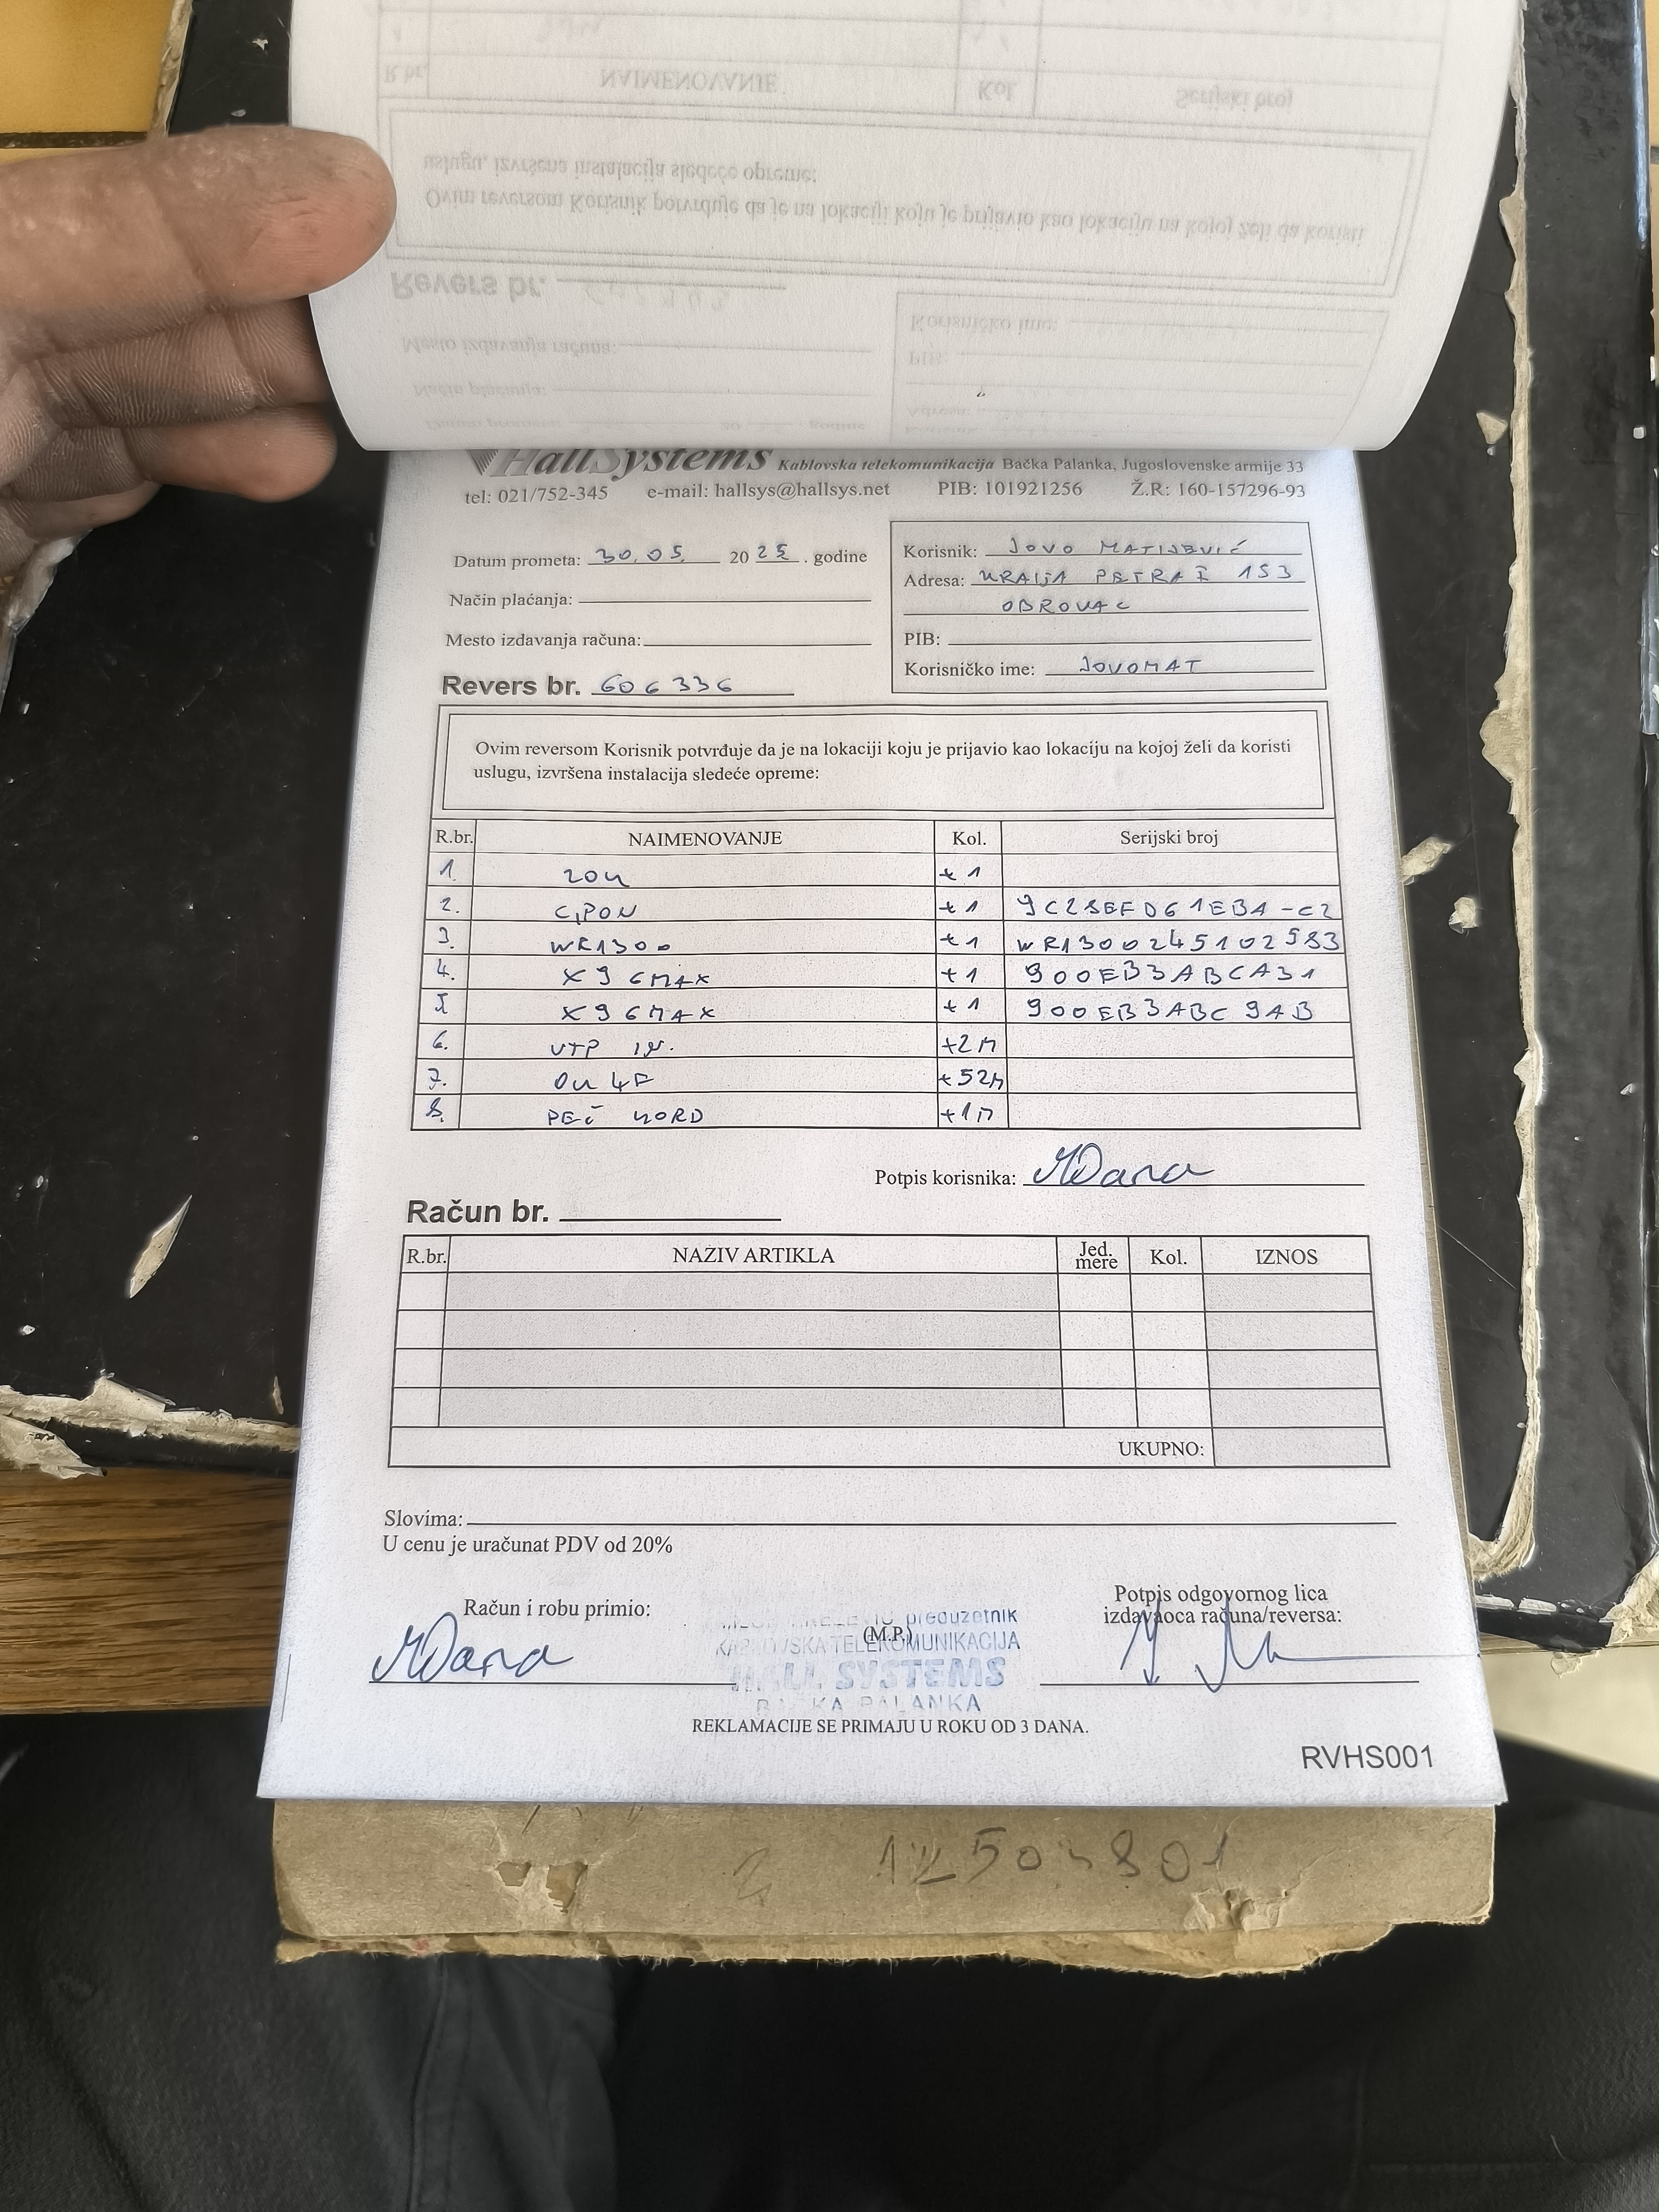 HallSystems Kablovska telekomunikacija Bačka Palanka, Jugoslovenske armije 33
tel: 021/752-345 e-mail: hallsys@hallsys.net PIB: 101921256 Ž.R: 160-157296-93
Datum prometa: 30.05. 2025. godine
Način plaćanja:
Mesto izdavanja računa:
Revers br. 606336
Korisnik: JOVO MATIJEVIĆ
Adresa: KRALJA PETRA I 153
OBROVAC
PIB:
Korisničko ime: JOVOMAT
Ovim reversom Korisnik potvrđuje da je na lokaciji koju je prijavio kao lokaciju na kojoj želi da koristi
uslugu, izvršena instalacija sledeće opreme:
R.br. NAIMENOVANJE Kol. Serijski broj
1. ZOK +1
2. GPON +1 9C28EFD61EBA-C2
3. WR1300 +1 WR1300245102583
4. X96MAX +1 900EB3ABCA31
5. X96MAX +1 900EB3ABC9AB
6. UTP +2M
7. OK 4F +52M
8. PEČ KORD +1M
Potpis korisnika: MDana
Račun br.
R.br. NAZIV ARTIKLA Jed. mere Kol. IZNOS
UKUPNO:
Slovima:
U cenu je uračunat PDV od 20%
Računi robu primio:
MDana
preduzetnik
(M.P.)
KABLOVSKA TELEKOMUNIKACIJA
HALL SYSTEMS
BAČKA PALANKA
Potpis odgovornog lica
izdavaoca računa/reversa:
REKLAMACIJE SE PRIMAJU U ROKU OD 3 DANA.
RVHS001